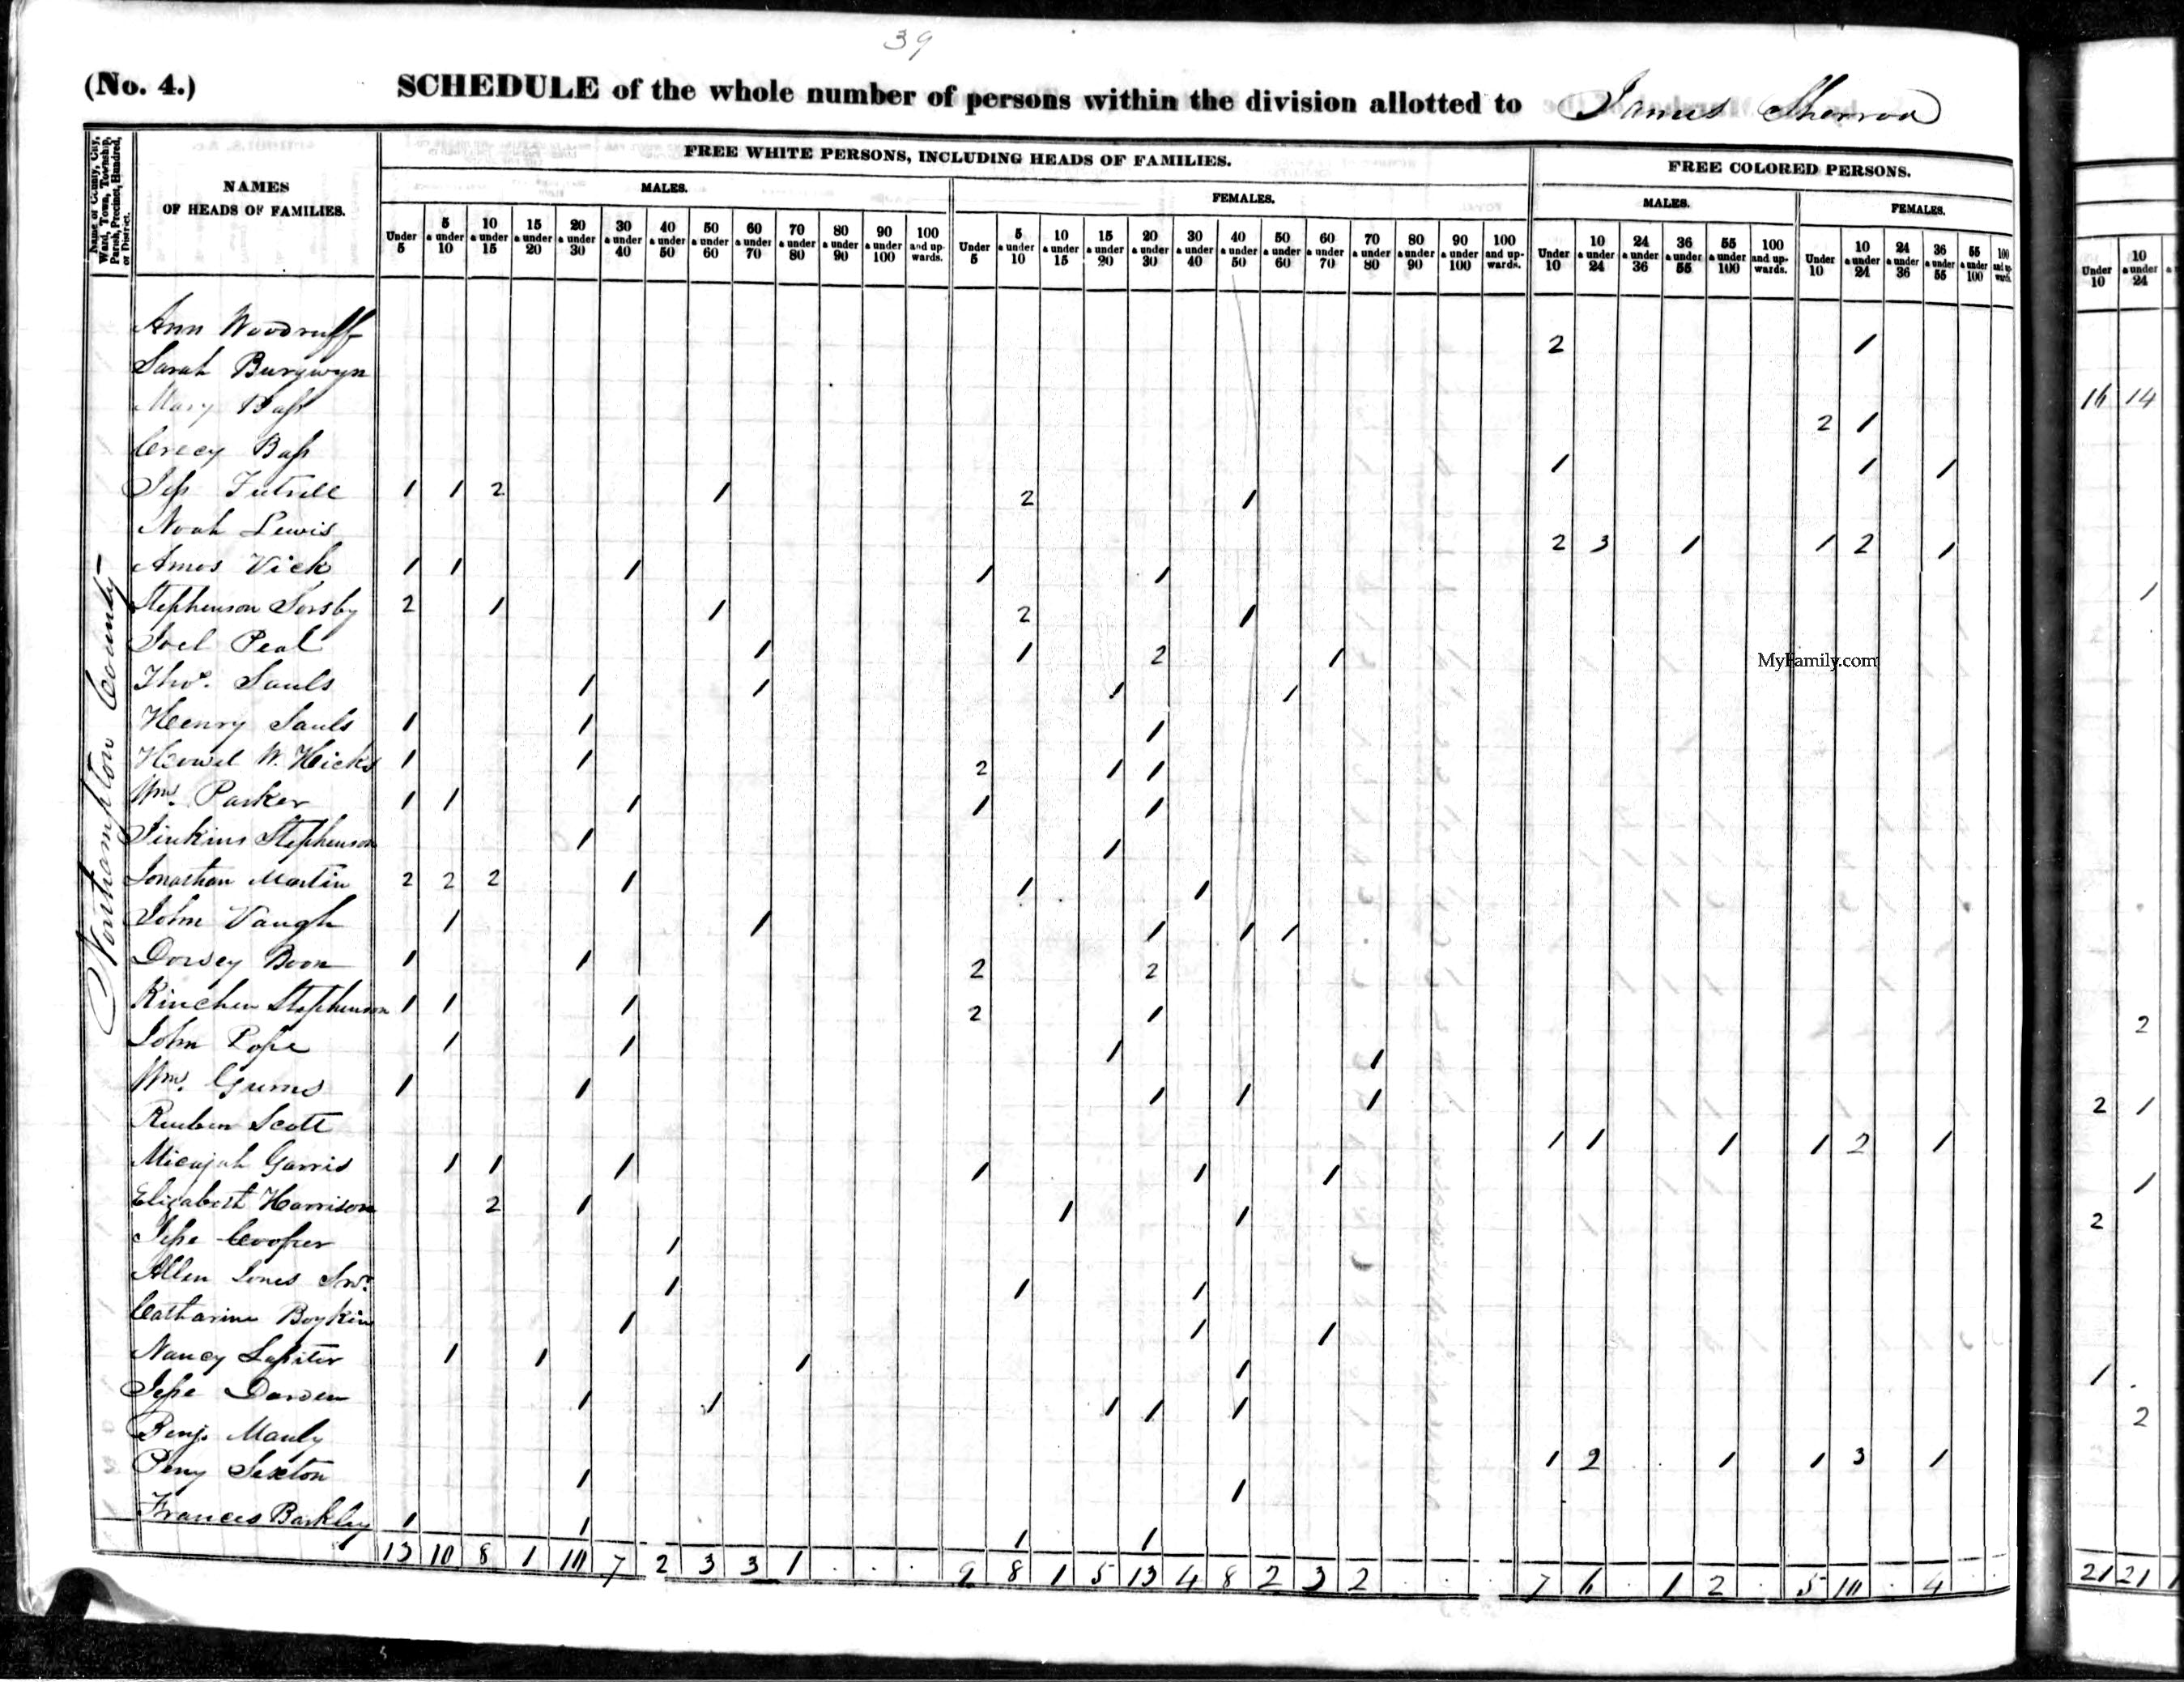 39
(No. 4.) SCHEDULE of the whole number of persons within the division allotted to James Sherrod
Name of County, City, Ward, Town, Township, Parish, Precinct, Hundred, or District.
NAMES
OF HEADS OF FAMILIES.
FREE WHITE PERSONS, INCLUDING HEADS OF FAMILIES.
FREE COLORED PERSONS.
MALES. FEMALES. MALES. FEMALES.
Under 5
5 & under 10
10 & under 15
15 & under 20
20 & under 30
30 & under 40
40 & under 50
50 & under 60
60 & under 70
70 & under 80
80 & under 90
90 & under 100
100 and upwards.
Under 5
5 & under 10
10 & under 15
15 & under 20
20 & under 30
30 & under 40
40 & under 50
50 & under 60
60 & under 70
70 & under 80
80 & under 90
90 & under 100
100 and upwards.
Under 10
10 & under 24
24 & under 36
36 & under 55
55 & under 100
100 and upwards.
Under 10
10 & under 24
24 & under 36
36 & under 55
55 & under 100
100 and upwards.
Northampton County
Ann Woodruff 2 1
Sarah Burgwyn
Mary Bass 2 1
Crecy Bass 1 1 1
Jess Futrell 1 1 2 1 2 1
Noah Lewis 2 3 1 1 2 1
Amos Vick 1 1 1 1 1
Stephenson Sorsby 2 1 1 2 1
Joel Peal 1 1 2 1
Thos. Sauls 1 1 1 1
Henry Sauls 1 1 1
Howel W. Hicks 1 1 2 1 1
Wm. Parker 1 1 1 1 1
Jinkins Stephenson 1 1
Jonathan Martin 2 2 2 1 1 1
John Vaugh 1 1 1 1 1
Dorsey Boon 1 1 2 2
Kinchen Stephenson 1 1 1 2 1
John Pope 1 1 1 1
Wm. Gums 1 1 1 1 1
Reuben Scott 1 1 1 1 2 1
Micajah Garris 1 1 1 1 1 1
Elizabeth Harrison 2 1 1 1
Jesse Cooper 1
Allen Jones 1 1 1
Catharine Boykin 1 1 1
Nancy Lassiter 1 1 1 1
Jesse Darden 1 1 1 1 1
Benj. Manly 1 2 1 1 3 1
Peny Sexton 1 1
Frances Barkley 1 1 1 1
13 10 8 1 10 7 2 3 3 1 9 8 1 5 13 4 8 2 3 2 7 6 1 2 5 10 4
MyFamily.com
Under 10
10 & under 24
16 14
1
2
2 1
1
2
1
2
21 21